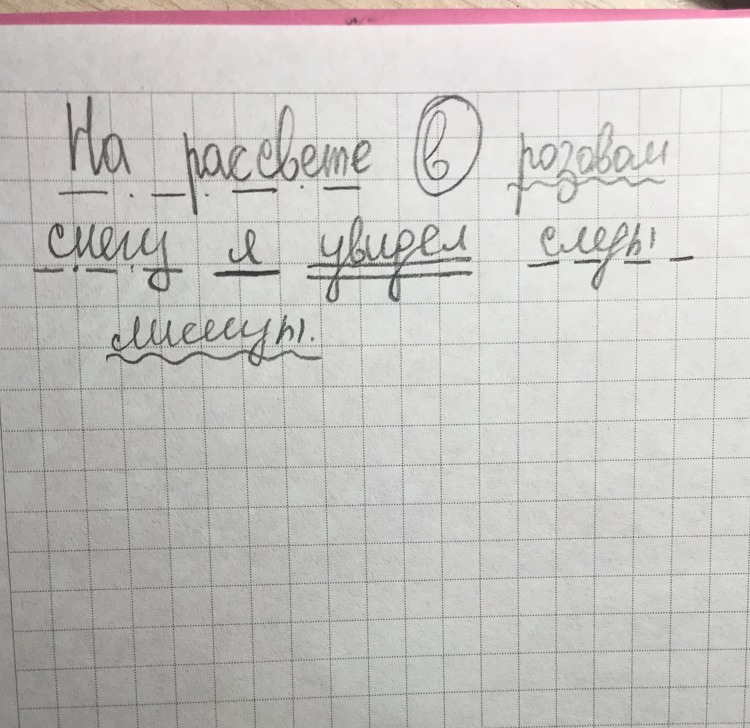 На рассвете в розовом
снегу я увидел следы
лисицы.